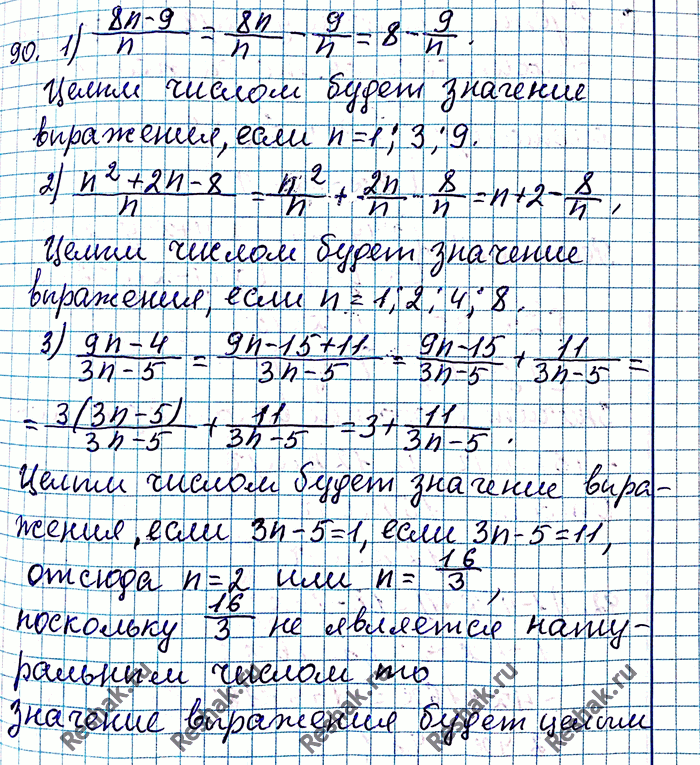 90. 1) (8n-9)/n = 8n/n - 9/n = 8 - 9/n.
Целым числом будет значение
выражения, если n=1; 3; 9.
2) (n²+2n-8)/n = n²/n + 2n/n - 8/n = n+2-8/n,
Целым числом будет значение
выражения, если n=1; 2; 4; 8.
3) (9n-4)/(3n-5) = (9n-15+11)/(3n-5) = (9n-15)/(3n-5) + 11/(3n-5) =
= 3(3n-5)/(3n-5) + 11/(3n-5) = 3 + 11/(3n-5).
Целым числом будет значение выра-
жения, если 3n-5=1, если 3n-5=11,
отсюда n=2 или n= 16/3,
поскольку 16/3 не является нату-
ральным числом то
значение выражения будет целым
Reshak.ru Reshak.ru Reshak.ru Reshak.ru Reshak.ru